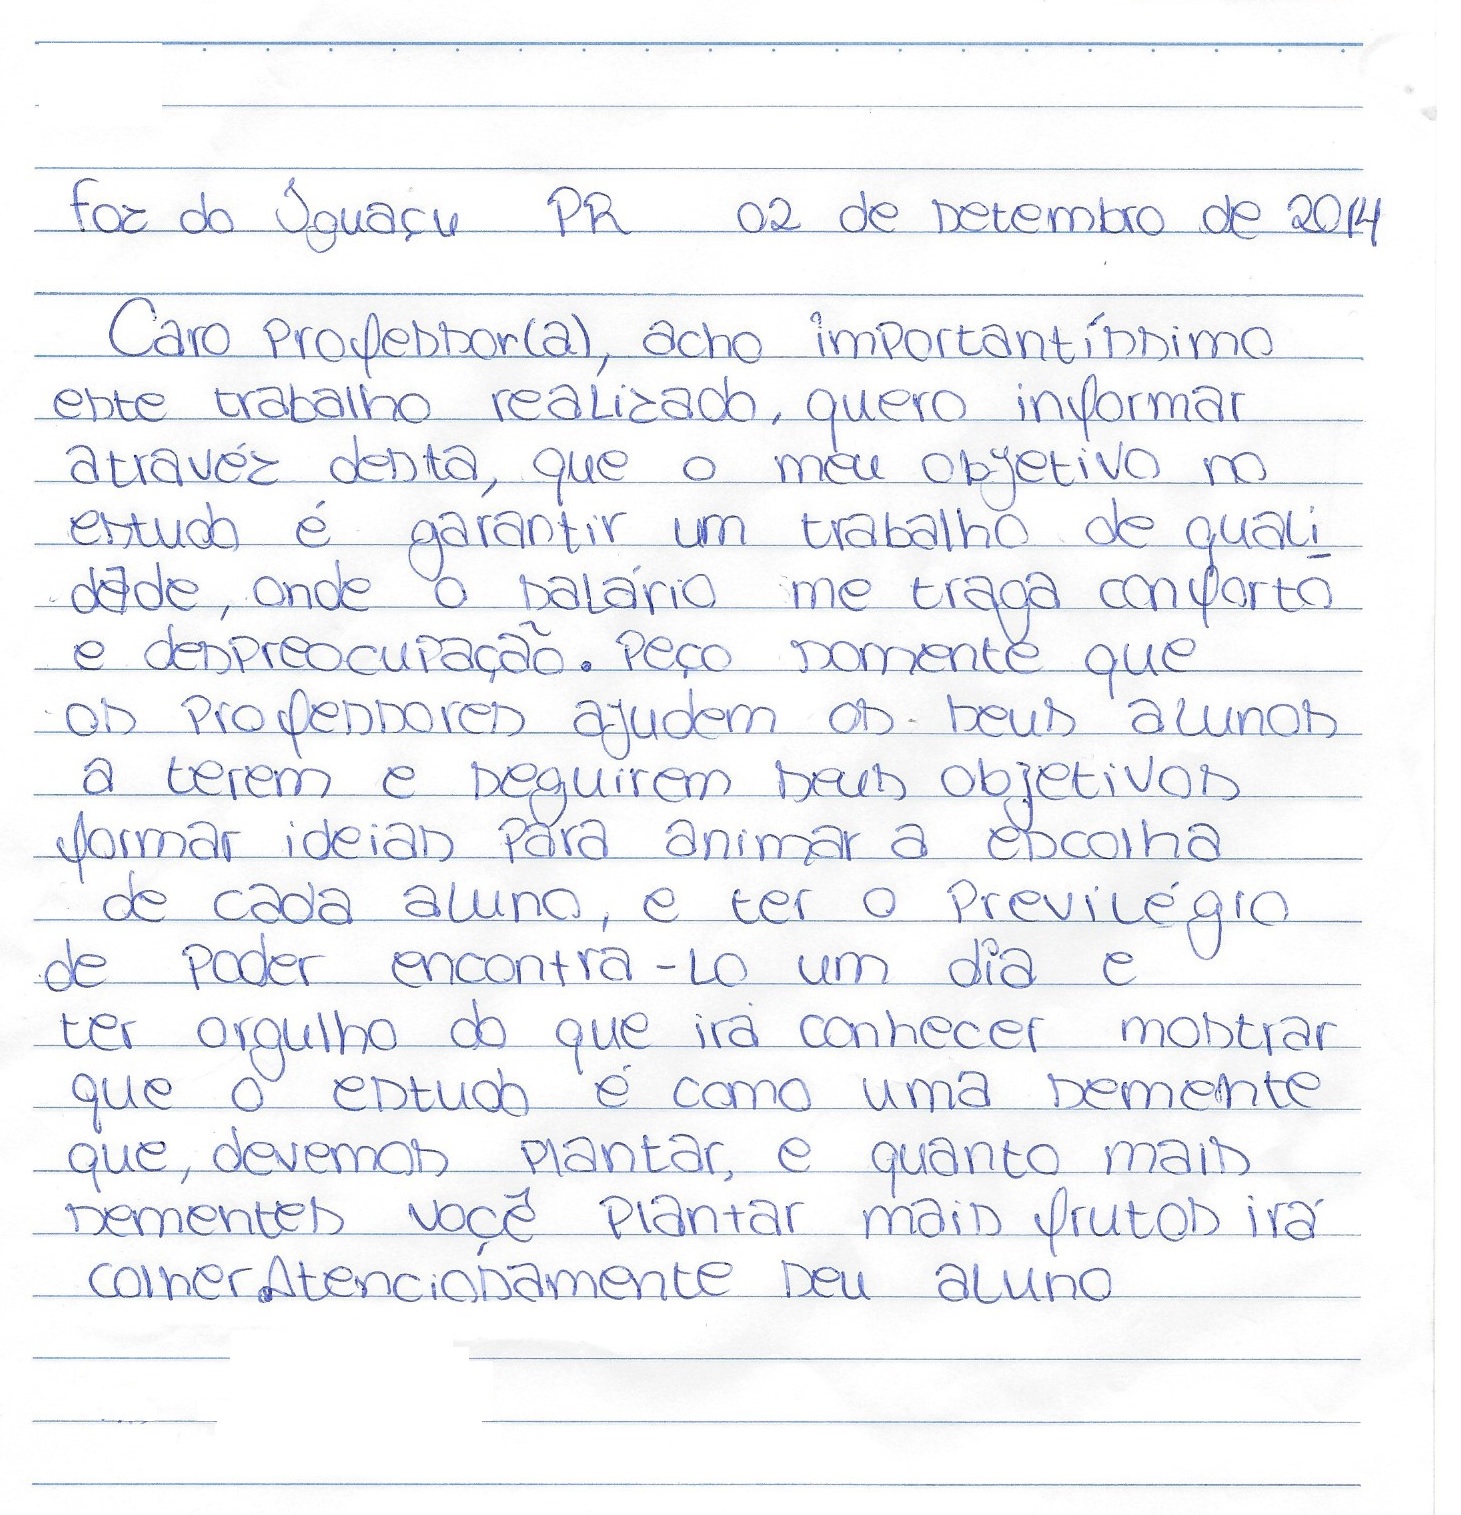 Foz do Iguaçu PR 02 de setembro de 2014
Caro professor(a), acho importantíssimo
este trabalho realizado, quero informar
atravéz desta, que o meu objetivo no
estudo é garantir um trabalho de quali
dade, onde o salário me traga conforto
e despreocupação. Peço somente que
os professores ajudem os seus alunos
a terem e seguirem seus objetivos
formar ideias para animar a escolha
de cada aluno, e ter o previlégio
de poder encontra-lo um dia e
ter orgulho do que irá conhecer mostrar
que o estudo é como uma semente
que, devemos plantar, e quanto mais
sementes voçê plantar mais frutos irá
colher. Atenciosamente seu aluno